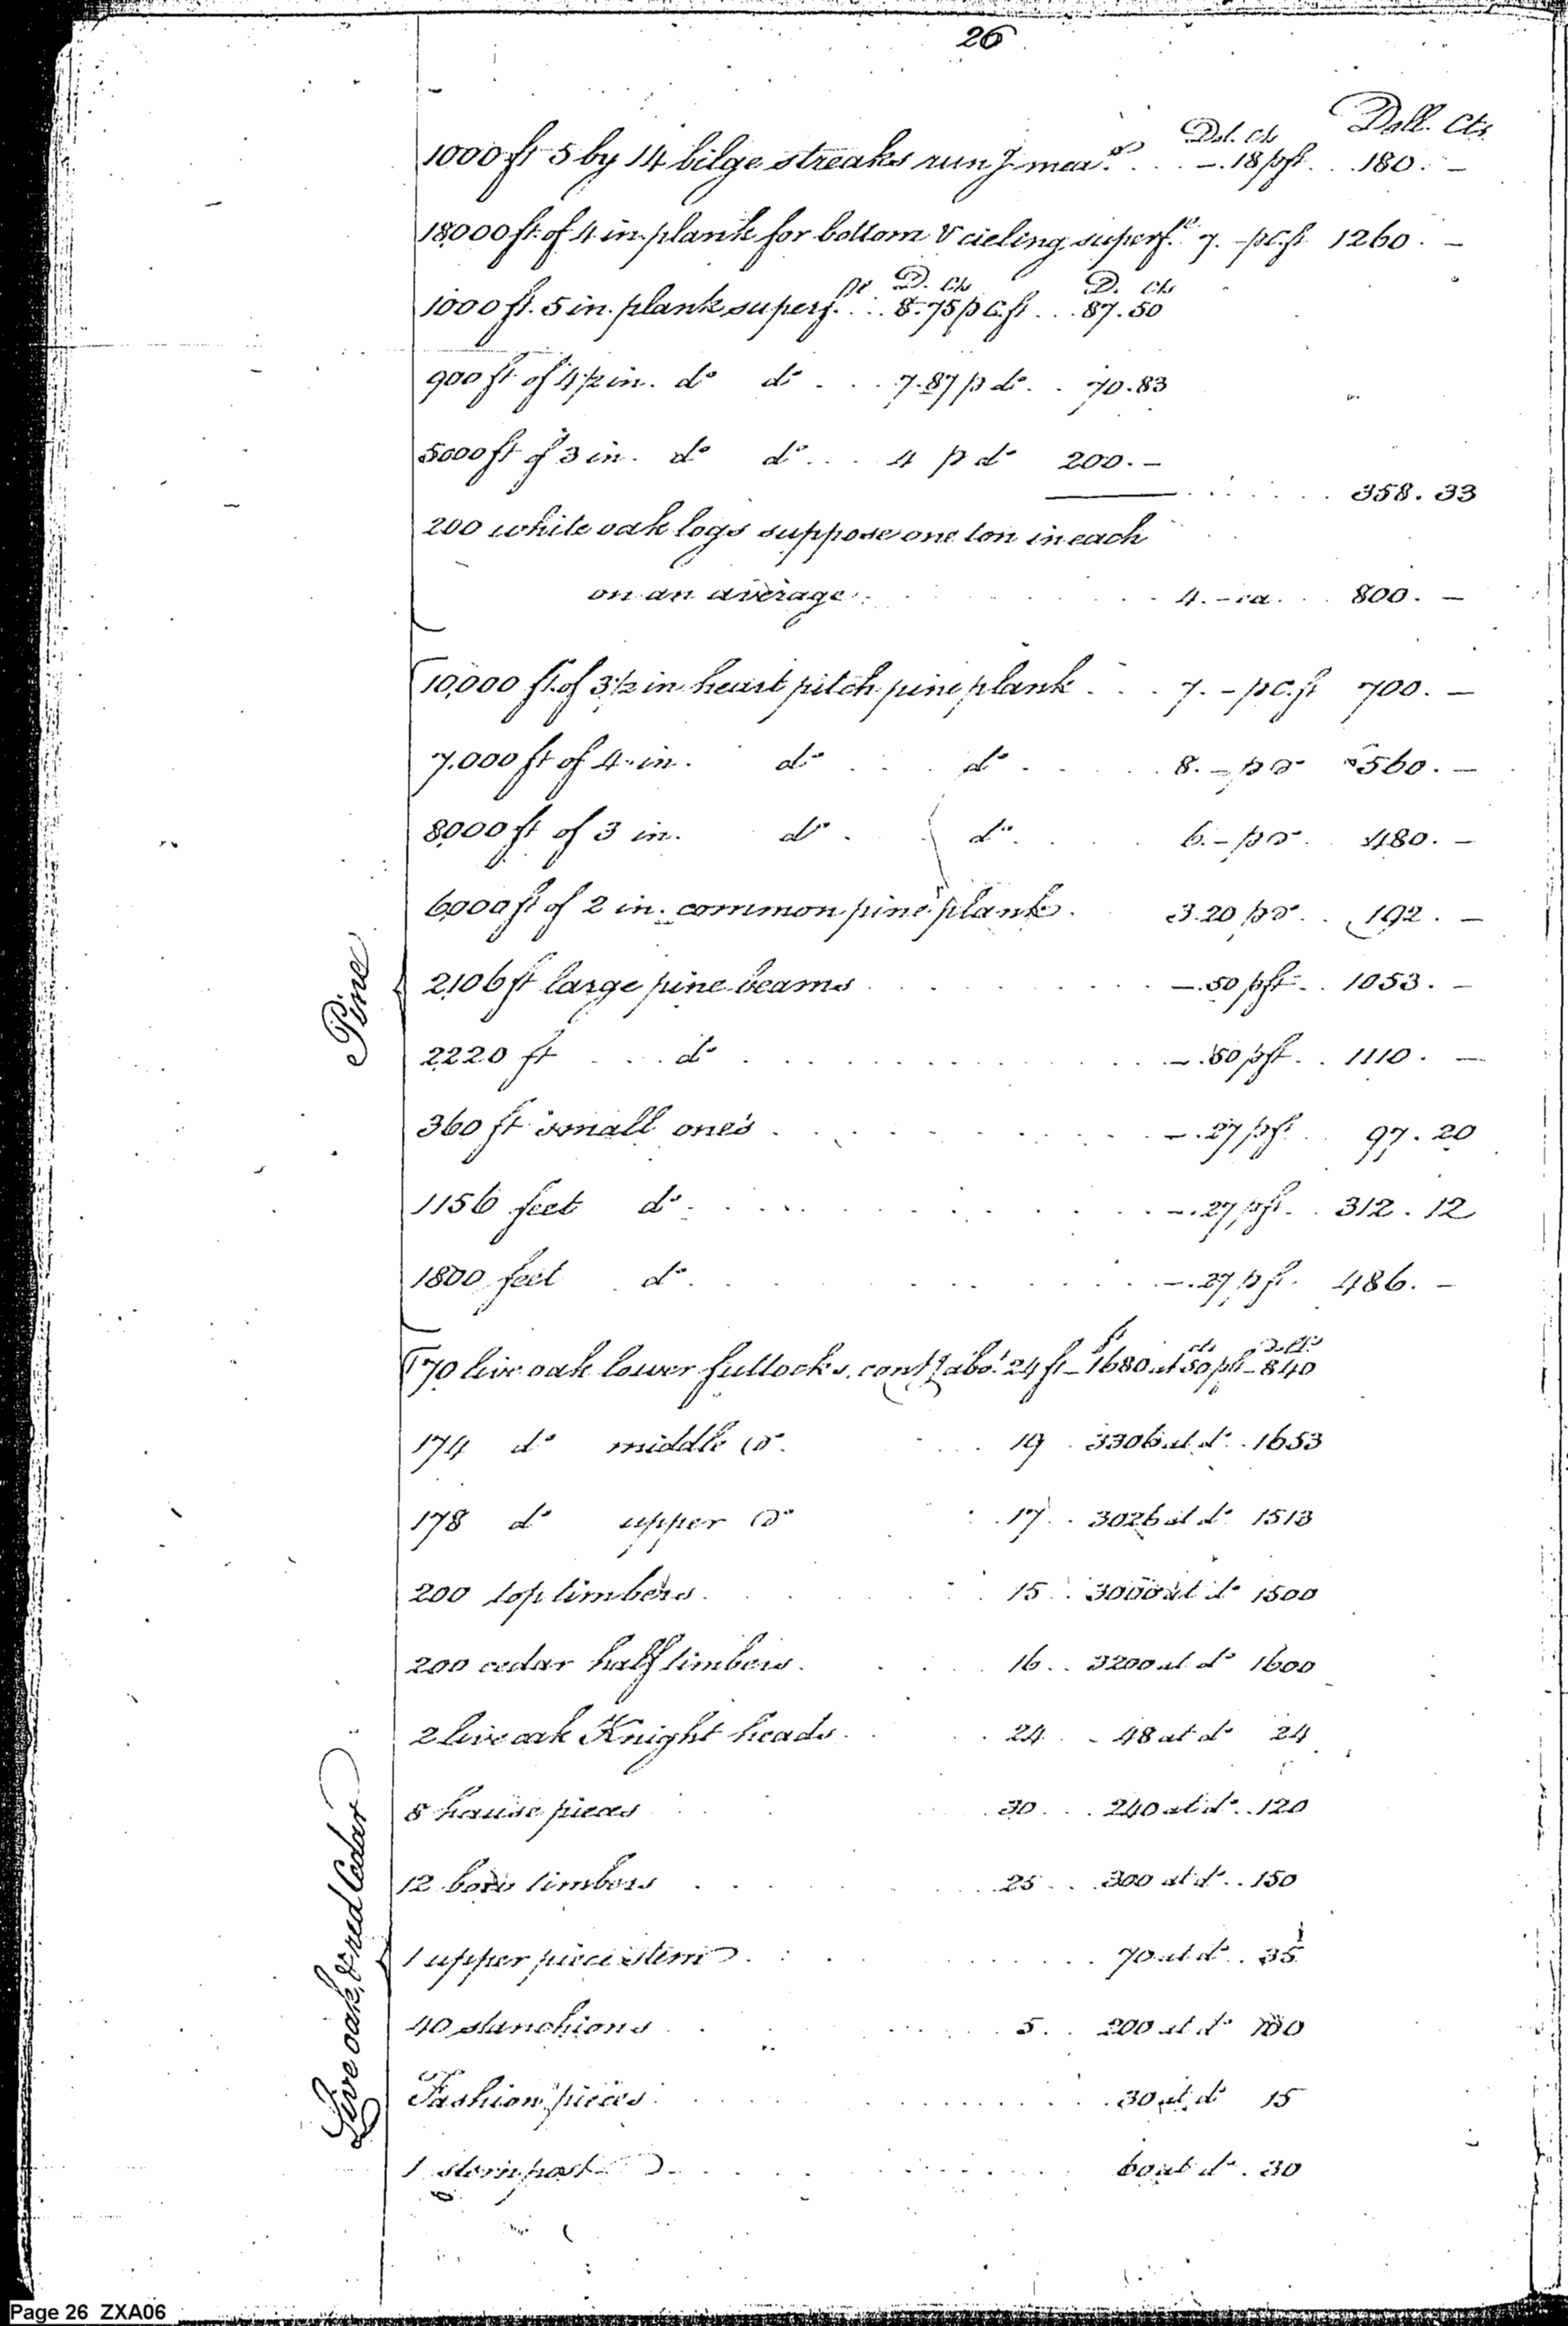 26
Dol. cts Doll. Cts
1000 ft 5 by 14 bilge streaks rung mea.e . . . -.18 p ft . . . 180. -
18,000 ft of 4 in. plank for bottom & cieling superf.l 7. - p C. ft 1260. -
pr D. cts D. cts
1000 ft. 5 in. plank superf. . . . 8.75 p C. ft . . . 87.50
900 ft of 4 1/2 in. do do . . . 7.87 p do . . 70.83
5000 ft of 3 in. do do . . . 4 p do 200. -
. . . . . . . 358. 33
200 white oak logs suppose one ton in each
on an average . . . . . . . 4. - ea. . . 800. -
10,000 ft of 3 1/2 in heart pitch pine plank . . . 7. - p C. ft 700. -
7,000 ft of 4 in. do . . . do . . . . 8. - p do 560. -
8000 ft of 3 in. do . . . do . . . . 6. - p do . . 480. -
6000 ft of 2 in. common pine plank . . 3.20 p do . . 192. -
Pine
2106 ft large pine beams . . . . . . . . -.50 p ft . . 1053. -
2220 ft . . . do . . . . . . . . . . -.50 p ft . . 1110. -
360 ft small ones . . . . . . . . . . -.27 p ft . . 97. 20
1156 feet do . . . . . . . . . . . -.27 p ft . . 312. 12
1800 feet do . . . . . . . . . . . -.27 p ft . 486. -
ft cts Dolls
170 live oak lower futtocks, contg abot 24 ft - 1680 at 50 p ft - 840
174 do middle do . . . . 19 . 3306 at do . 1653
178 do upper do . . . 17 . . 3026 at do 1513
200 top timbers . . . . . . 15 . . 3000 at do 1500
200 cedar half timbers . . . . 16 . . 3200 at do 1600
2 live oak Knight heads . . . . 24 . . 48 at do 24
8 hause pieces . . . . 30 . . . 240 at do . . 120
12 bow timbers . . . . . . 25 . . . 300 at do . . 150
Live oak, & red Cedar
1 upper piece stern . . . . . . . . 70 at do . . 35
40 stanchions . . . . . . . 5 . . 200 at do 100
Fashion pieces . . . . . . . . . . 30 at do 15
1 stern post . . . . . . . . . . 60 at do . 30
Page 26 ZXA06